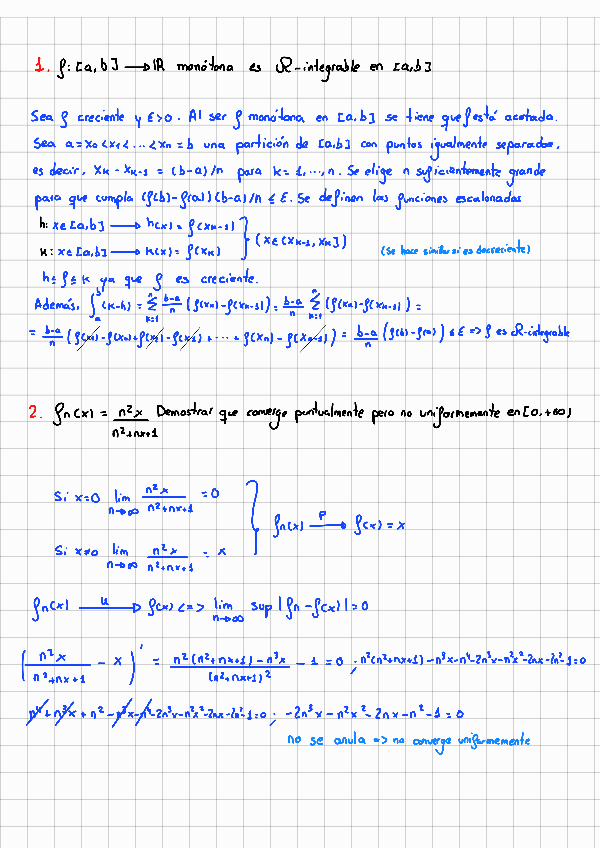 1. f: [a, b] ⟶ ℝ monótona es ℛ-integrable en [a, b]
Sea f creciente y ε>0. Al ser f monótona en [a, b] se tiene que f está acotada.
Sea a = x₀ < x₁ < ... < xₙ = b una partición de [a, b] con puntos igualmente separados,
es decir, xₖ - xₖ₋₁ = (b-a)/n para k = 1, ..., n. Se elige n suficientemente grande
para que cumpla (f(b) - f(a))(b-a)/n ≤ ε. Se definen las funciones escalonadas
h: x∈[a, b] ⟶ h(x) = f(xₖ₋₁)
k: x∈[a, b] ⟶ k(x) = f(xₖ) } (x∈(xₖ₋₁, xₖ]) (Se hace similar si es decreciente)
h ≤ f ≤ k ya que f es creciente.
Además, ∫ₐᵇ (k-h) = Σₖ₌₁ⁿ (b-a)/n (f(xₖ) - f(xₖ₋₁)) = (b-a)/n Σₖ₌₁ⁿ (f(xₖ) - f(xₖ₋₁)) =
= (b-a)/n (f(x₁) - f(x₀) + f(x₂) - f(x₁) + ... + f(xₙ) - f(xₙ₋₁)) = (b-a)/n (f(b) - f(a)) ≤ ε => f es ℛ-integrable
2. fn(x) = n²x/(n²+nx+1) Demostrar que converge puntualmente pero no uniformemente en [0, +∞)
Si x=0 lim n→∞ n²x/(n²+nx+1) = 0
fn(x) ⟶ᵖ f(x) = x
Si x≠0 lim n→∞ n²x/(n²+nx+1) = x
fn(x) ⟶ᵘ f(x) <=> lim n→∞ sup |fn - f(x)| = 0
(n²x/(n²+nx+1) - x)' = (n²(n²+nx+1) - n³x)/(n²+nx+1)² - 1 = 0 ; n²(n²+nx+1) - n³x - n⁴ - 2n³x - n²x² - 2nx - 2n² - 1 = 0
n⁴ + n³x + n² - n³x - n⁴ - 2n³x - n²x² - 2nx - 2n² - 1 = 0 ; -2n³x - n²x² - 2nx - n² - 1 = 0
no se anula => no converge uniformemente